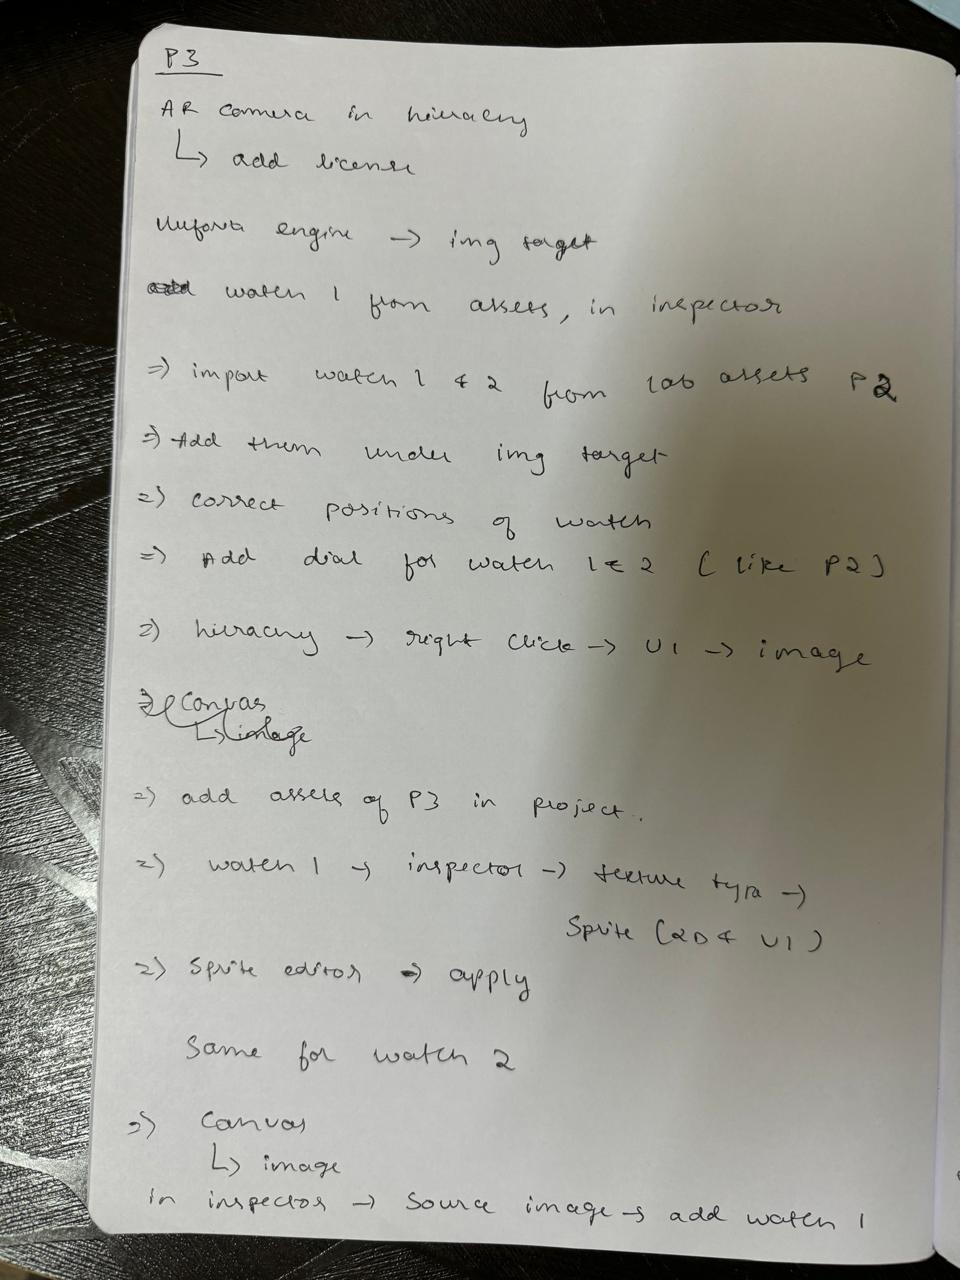 P3
AR camera in hieracry
↳ add license
Vuforia engine → img target
watch 1 from assets, in inspector
⇒ import watch 1 & 2 from lab assets P2
⇒ Add them under img target
⇒ correct positions of watch
⇒ Add dial for watch 1 & 2 ( like P2 )
⇒ hieracry → right click → UI → image
⇒ Canvas
↳ image
⇒ add assets of P3 in project.
⇒ watch 1 → inspector → texture type →
Sprite (2D & UI )
⇒ Sprite editor → apply
Same for watch 2
⇒ Canvas
↳ image
in inspector → Source image → add watch 1